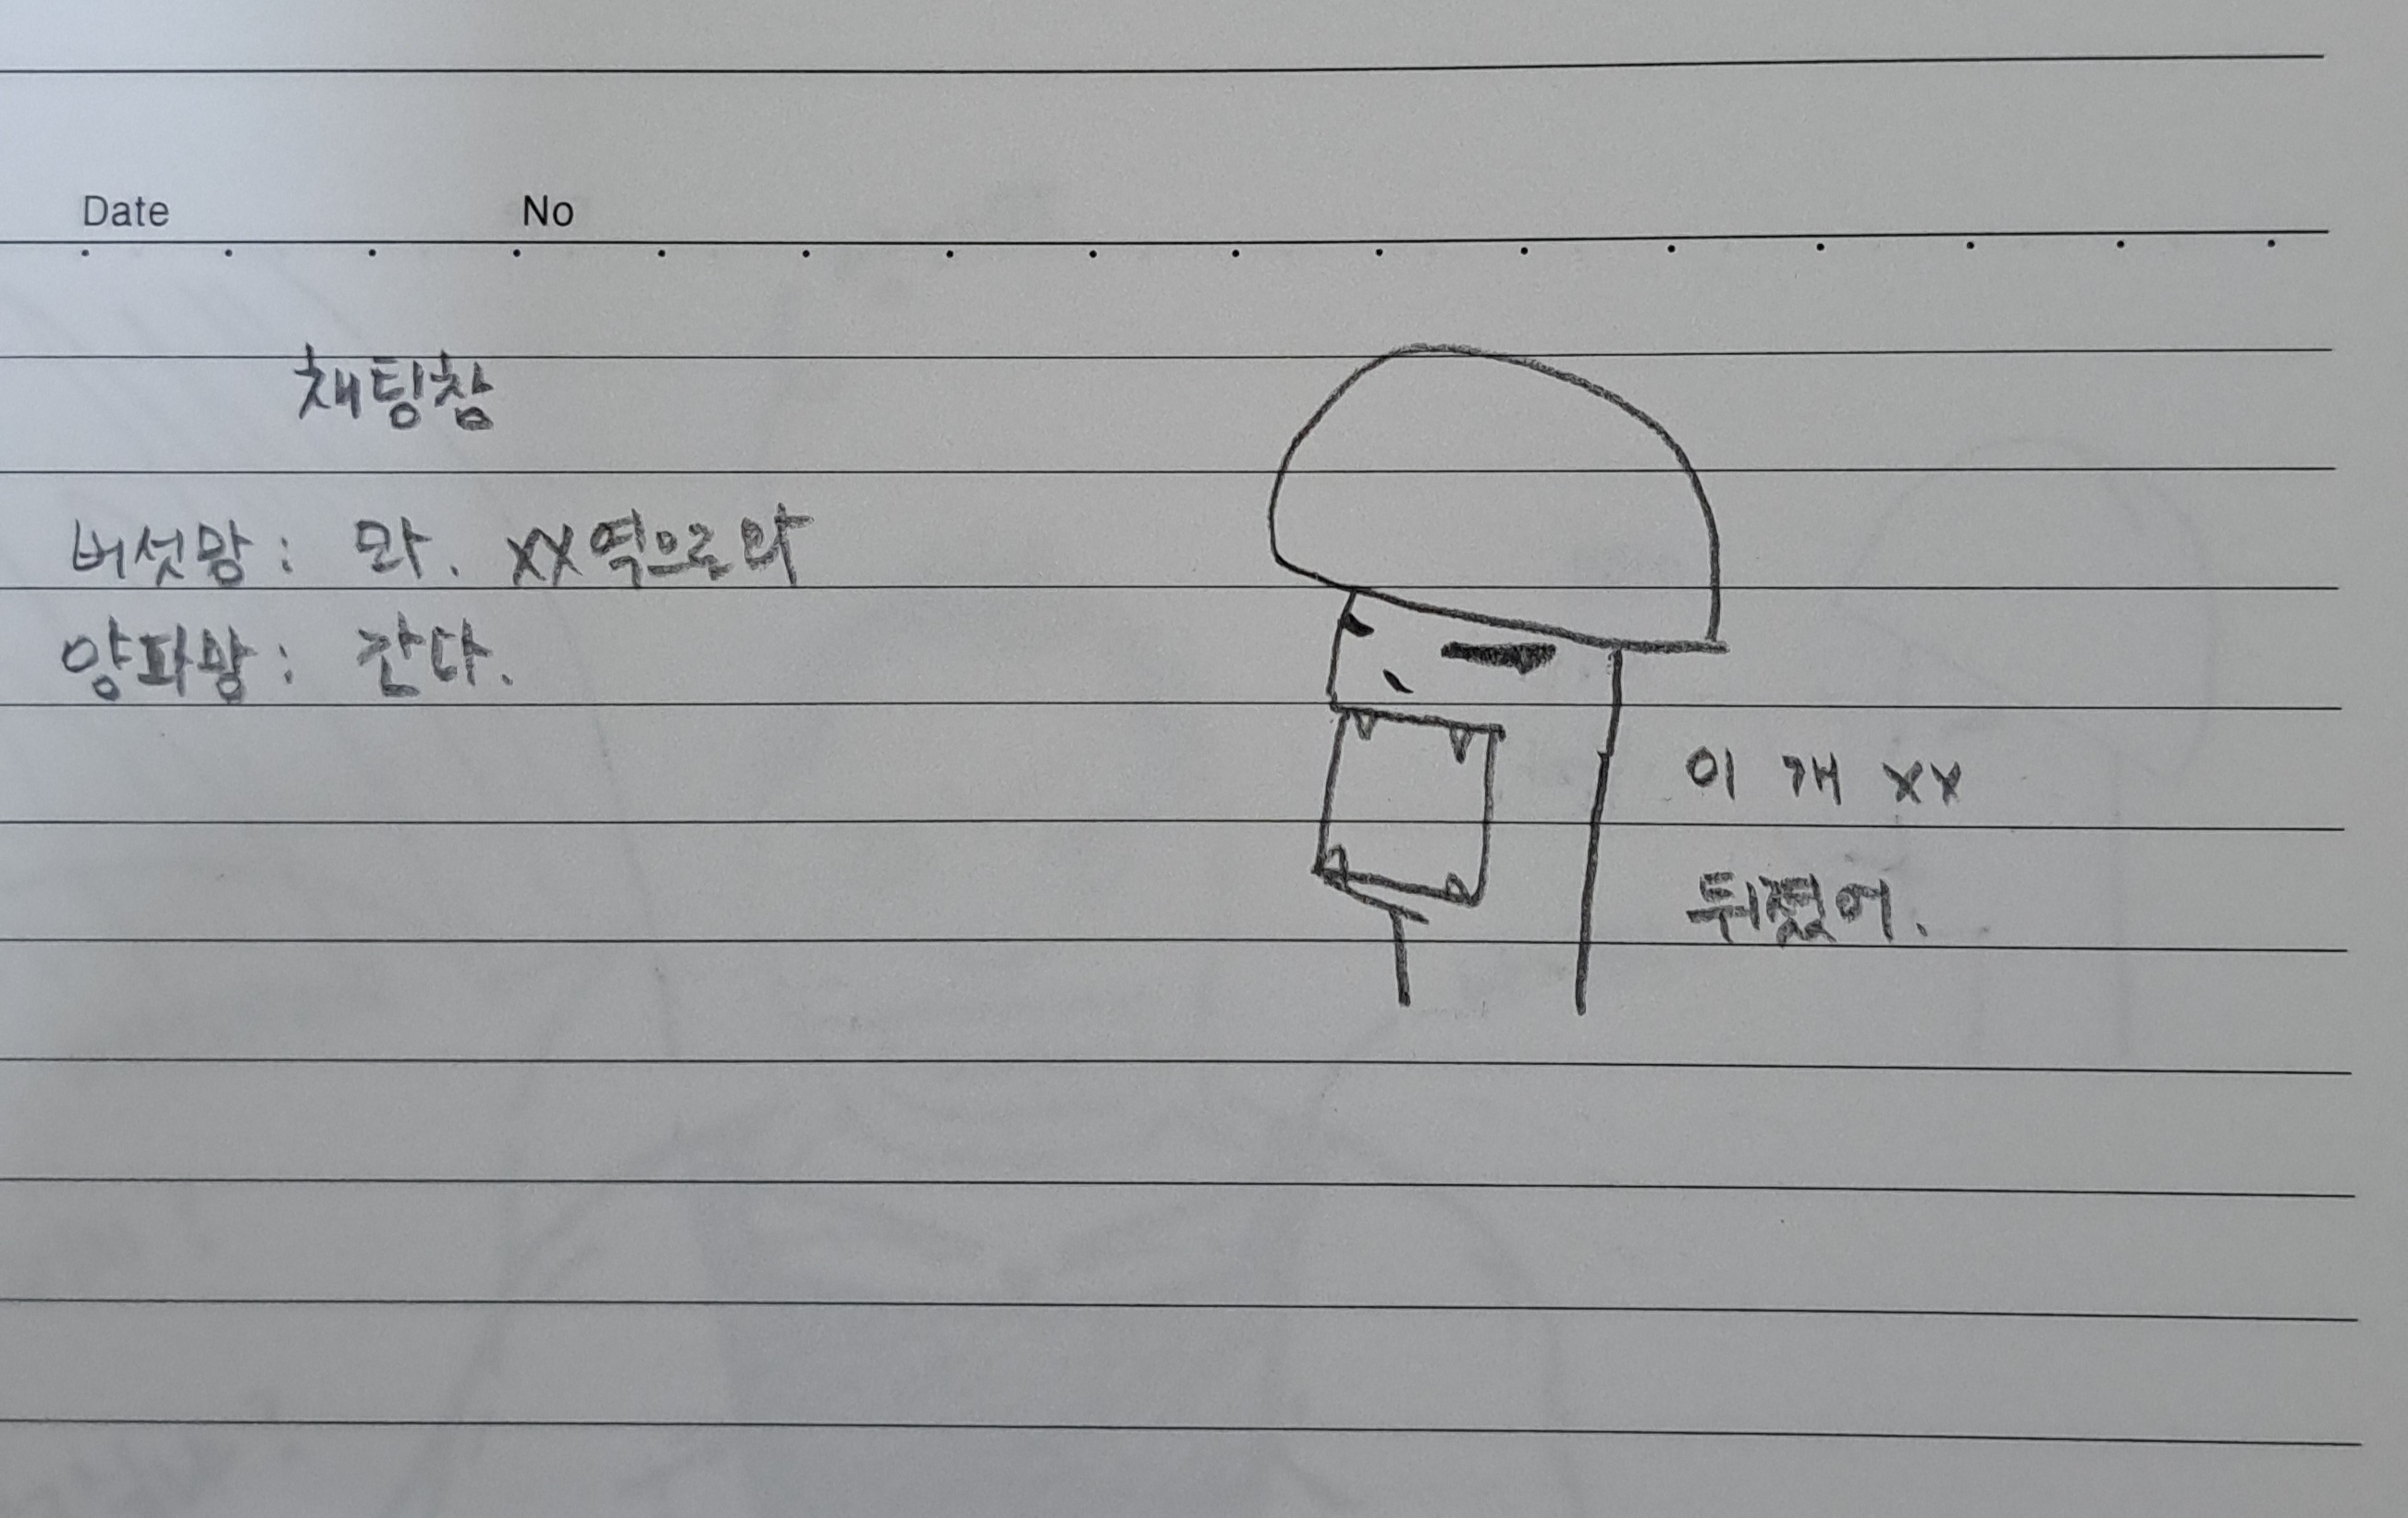 Date No
채팅창
버섯망: 와. xx역으로와
양파망: 간다.
이 개 xx
뒤졌어.